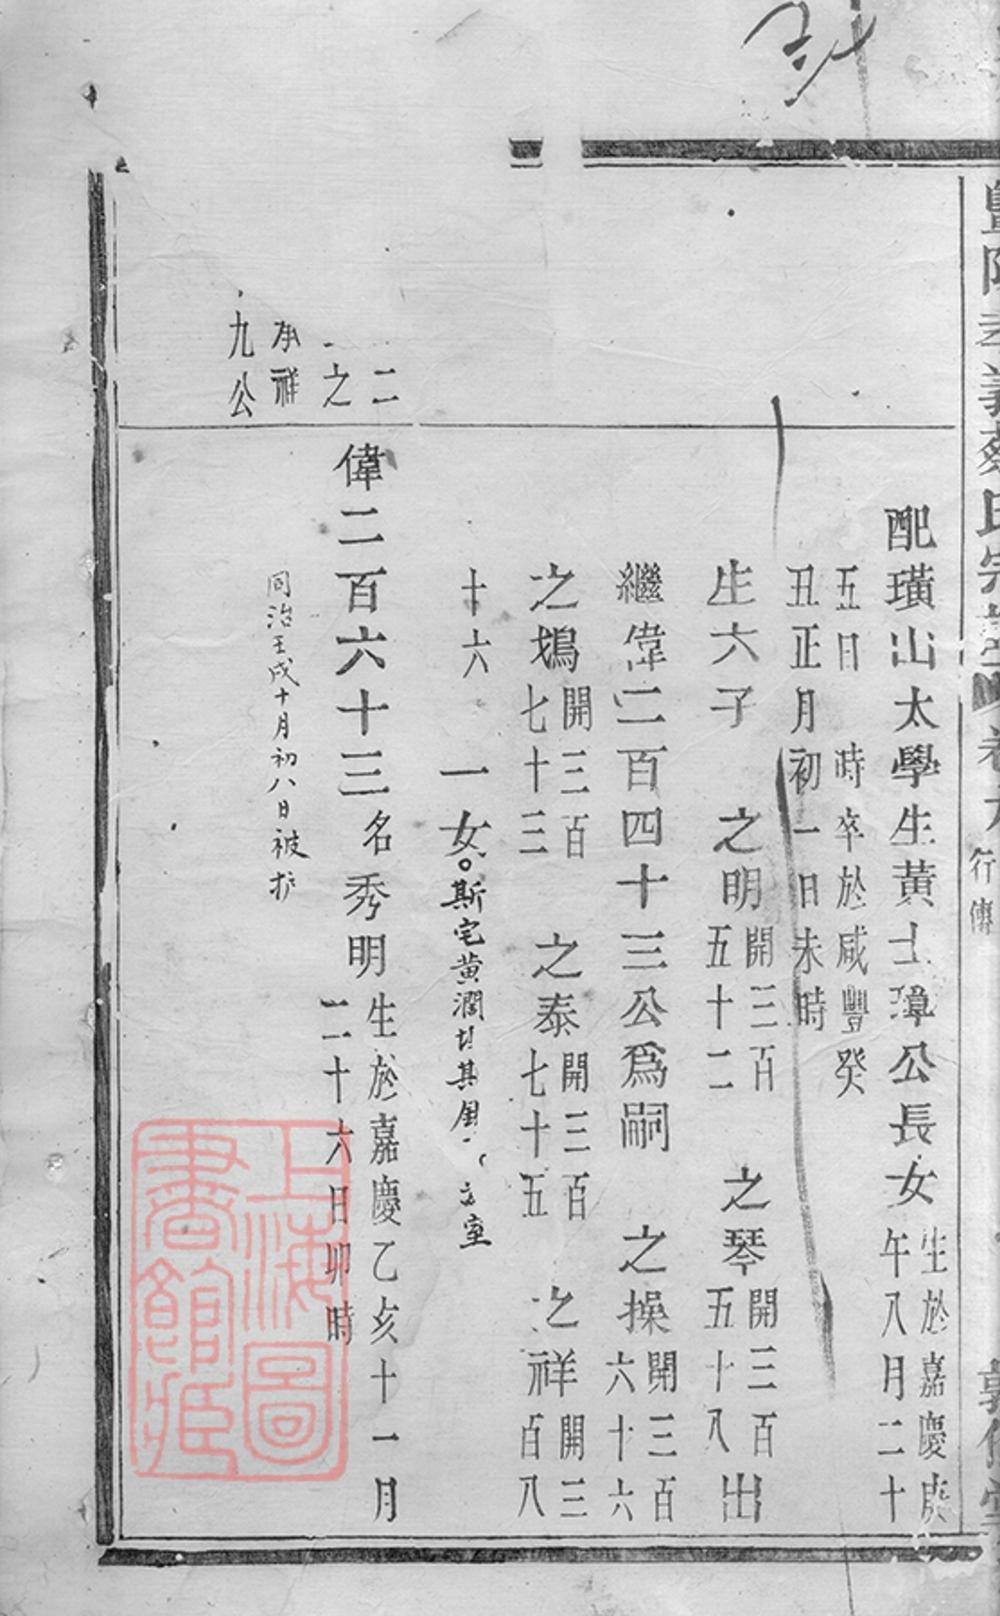 暨陽孝義蔡氏宗譜 卷九 行傳
配璜山太學生黃士璋公長女生於嘉慶庚午八月二十
五日 時卒於咸豐癸丑正月初一日未時
生六子 之明開三百五十二 之琴開三百五十八出
繼偉二百四十三公爲嗣 之操開三百六十六
之鵕開三百七十三 之泰開三百七十五 之祥開三百八
十六 一女。斯宅黃潤
室
二之
承祥
九公
偉二百六十三名秀明生於嘉慶乙亥十一月二十六日卯時
同治壬戌十月初八日被擄
上海圖書館藏